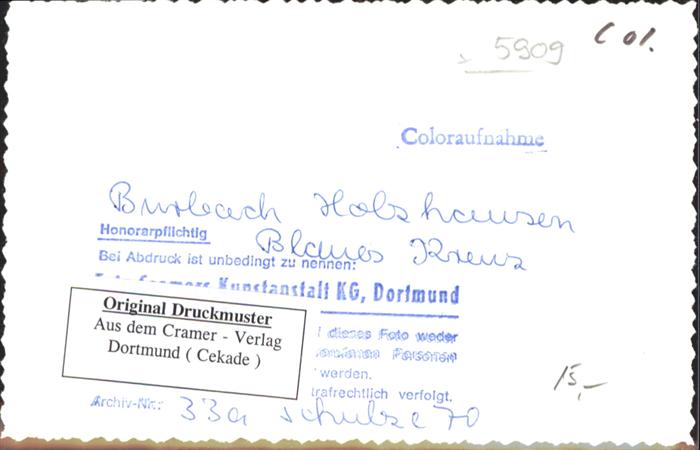 5909
Col.
Coloraufnahme
Burbach Holzhausen
Honorarpflichtig
Blaues Kreuz
Bei Abdruck ist unbedingt zu nennen:
Kunstanstalt KG, Dortmund
Original Druckmuster
Aus dem Cramer - Verlag
Dortmund ( Cekade )
dieses Foto weder
Personen
werden.
trafrechtlich verfolgt.
15,-
Archiv-Nr.: 33a Schulze 70